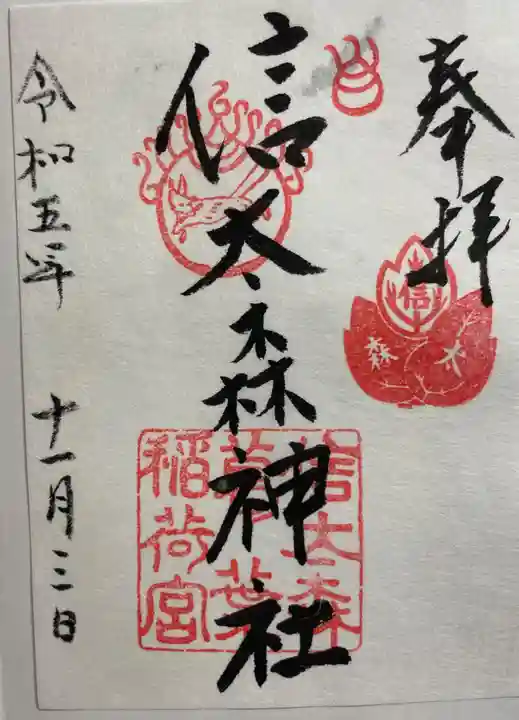 奉拝
信太森
信太森神社
信太森
葛葉
稲荷宮
令和五年 十一月三日